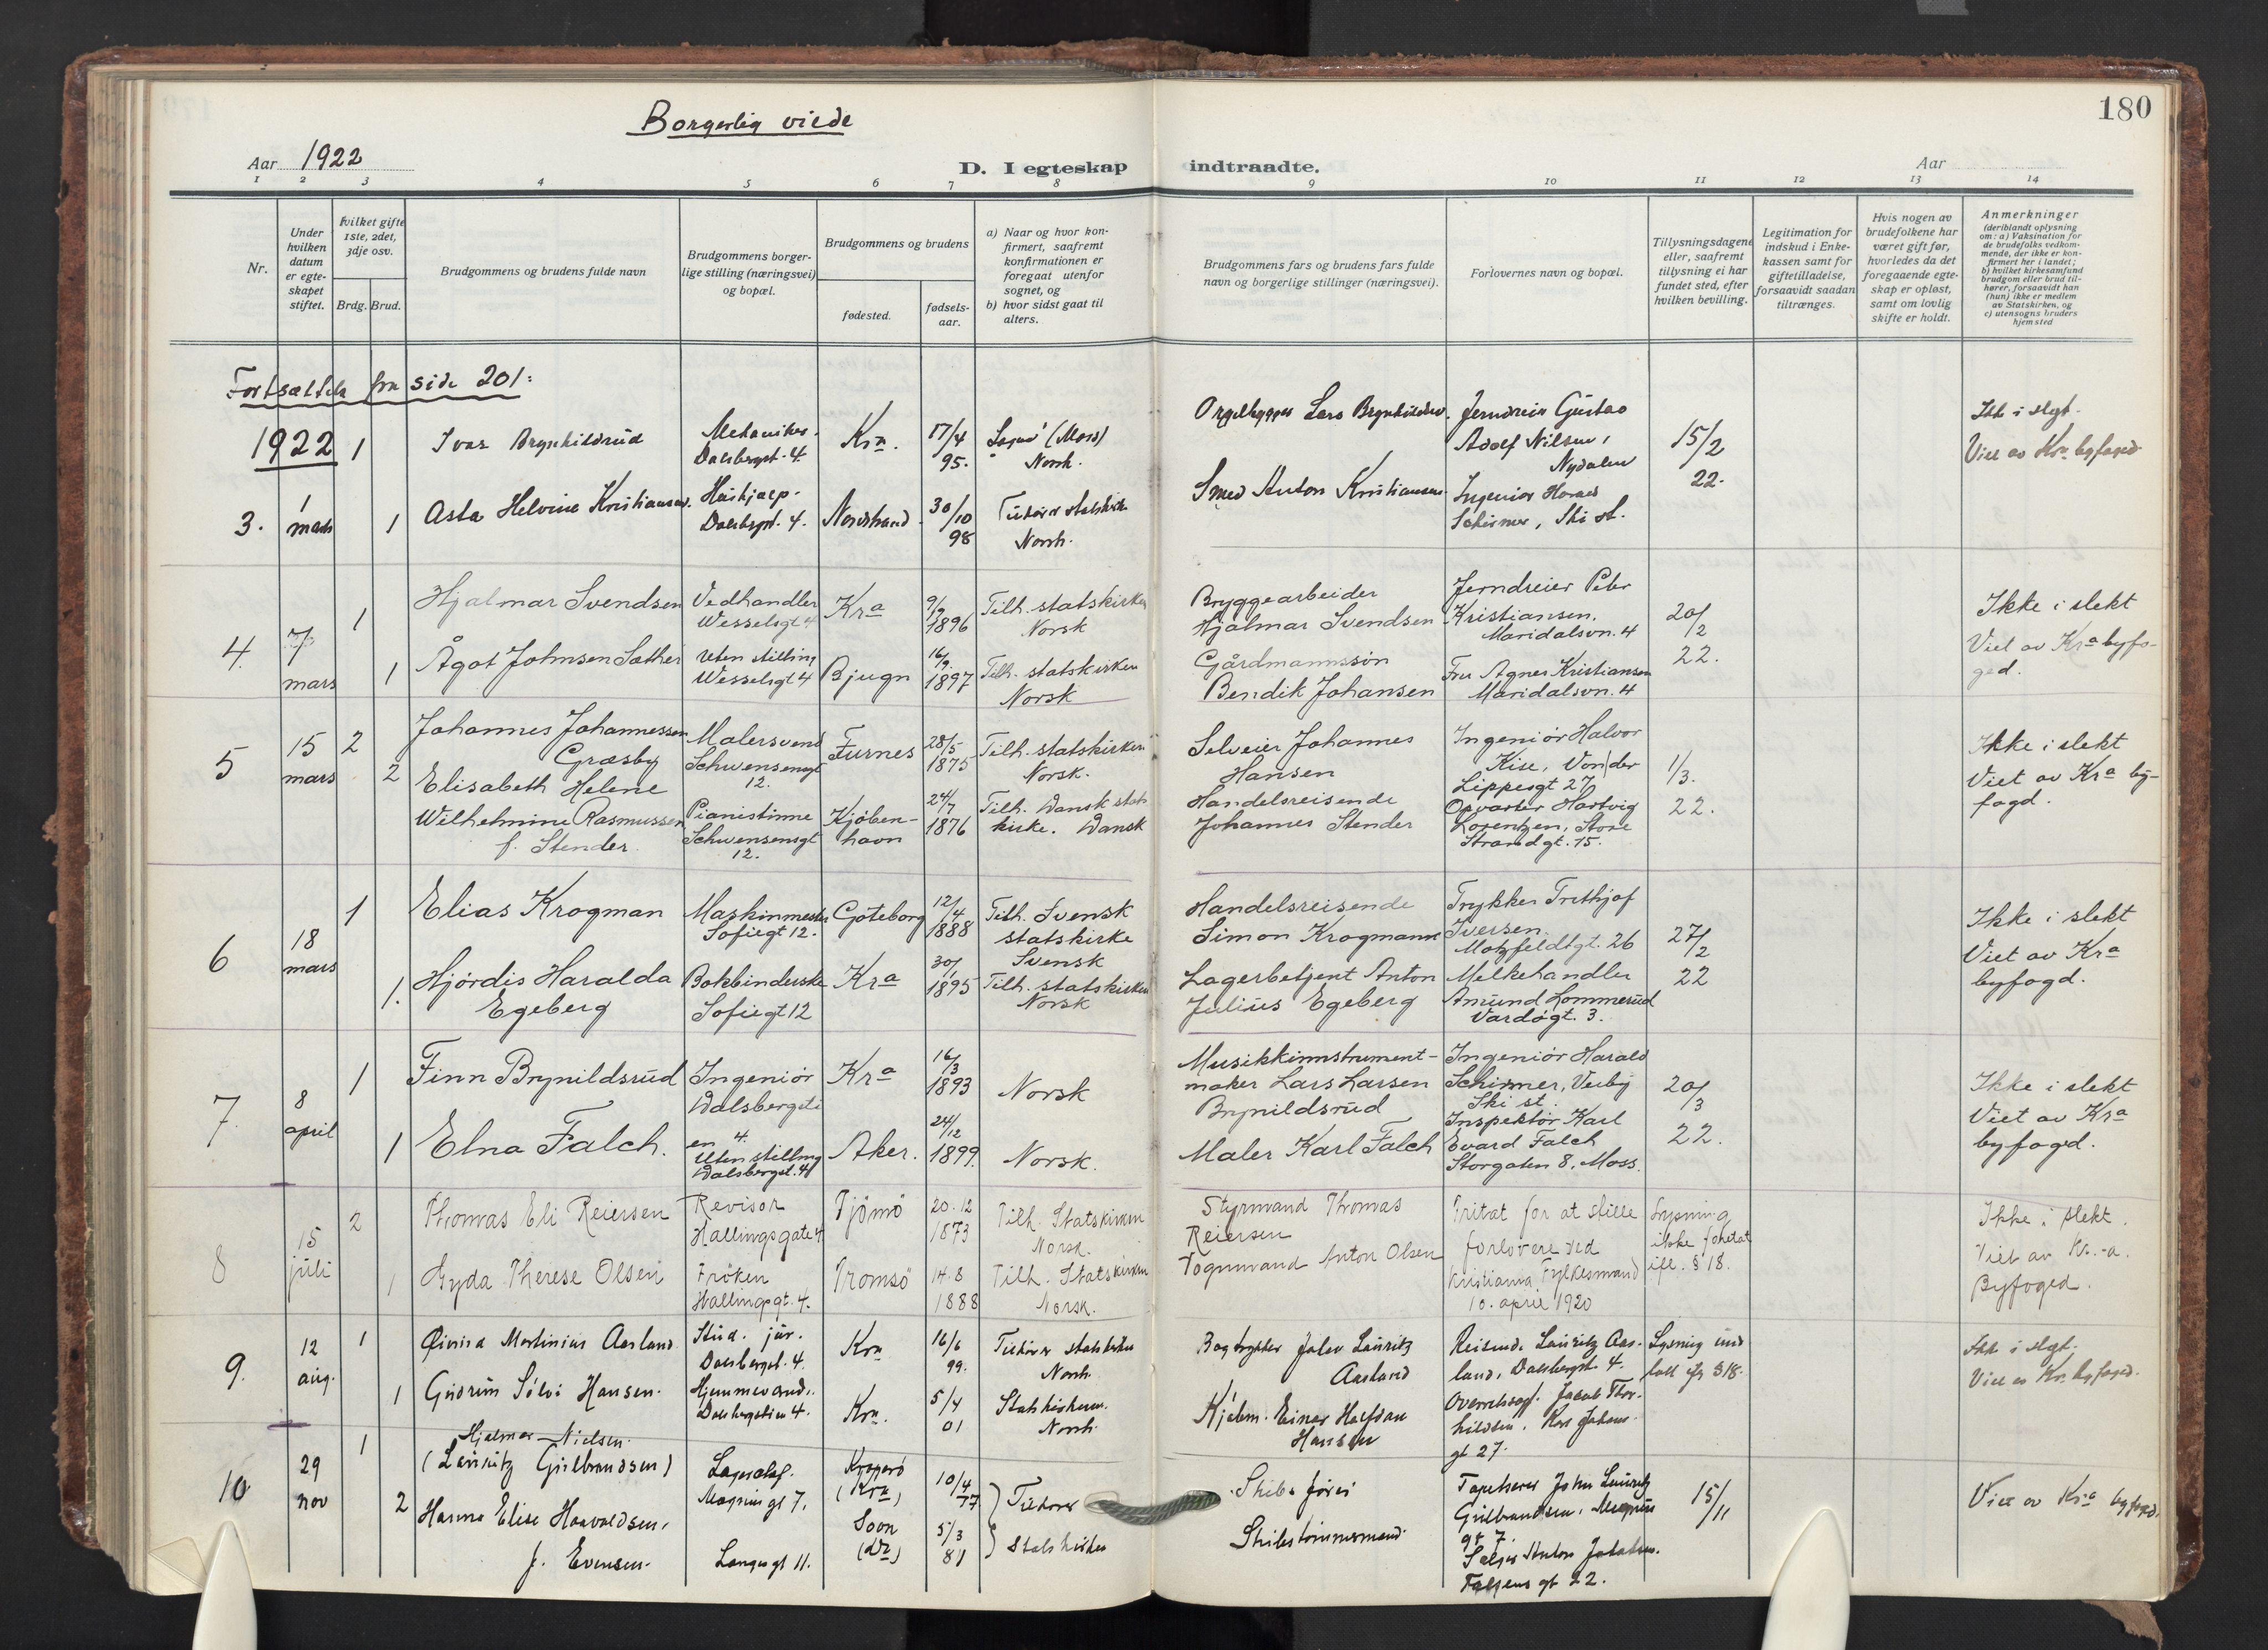 180
Borgerlig viede
Aar 1922
D. I egteskap indtraadte.
Aar
1 2 3 4 5 6 7 8 9 10 11 12 13 14
Nr.
Under hvilken datum er egte-skapet stiftet.
Hvilket gifte 1ste, 2det, 3dje osv.
Brdg. Brud.
Brudgommens og brudens fulde navn
Brudgommens borger-lige stilling (næringsvei) og bopæl.
Brudgommens og brudens
fødested.
fødsels-aar.
a) Naar og hvor kon-firmert, saafremt konfirmationen er foregaat utenfor sognet, og
b) hvor sidst gaat til alters.
Brudgommens fars og brudens fars fulde navn og borgerlige stillinger (næringsvei).
Forlovernes navn og bopæl.
Tillysningsdagene eller, saafremt tillysning ei har fundet sted, efter hvilken bevilling.
Legitimation for indskud i Enke-kassen samt for giftetilladelse, forsaavidt saadan tiltrænges.
Hvis nogen av brudefolkene har været gift før, hvorledes da det foregaaende egte-skap er opløst, samt om lovlig skifte er holdt.
Anmerkninger (deriblandt oplysning om: a) Vaksination for de brudefolks vedkom-mende, der ikke er kon-firmert her i landet; b) hvilket kirkesamfund brudgom eller brud til-hører, forsaavidt han (hun) ikke er medlem av Statskirken, og c) utensogns bruders hjemsted
Fortsættelse fra side 201:
1922 1 Ivar Brynhildsrud Mekaniker. Dalsbergst. 4. Kra. 17/4 95. (Moss) Norsk.
Orgelbygger Lars Brynhildsrud. Jerndreier Gustav Adolf Nilsen, Nydalen 15/2 22.
Ikke i slegt. Viet av Kra. byfoged
3. 1 mars 1 Asta Helvine Kristiansen. Hushjælp. Dalsbgst. 4. Nordstrand. 30/10 98 Tilhører statskirken Norsk.
Smed Anton Kristiansen. Ingeniør Harald Schirmer, Ski st.
4. 7 mars 1 Hjalmar Svendsen Vedhandler Wesselsgt 4 Kra 9/9 1896 Tilh. statskirken Norsk
Bryggearbeider Hjalmar Svendsen Jerndreier Peter Kristiansen. Maridalsvn. 4 20/2 22.
Ikke i slekt Viet av Kra byfo-ged.
1 Ågot Johnsen Sæther Uten stilling Wesselsgt 4 Bjugn 16/9 1897 Tilh. statskirken Norsk
Gårdmannssön Bendik Johansen Fru Agnes Kristiansen Maridalsvn. 4
5 15 mars 2 Johannes Johannessen Græsby Malersvend Schwensensgt 12. Furnes 28/5 1875 Tilh. statskirken Norsk.
Selveier Johannes Hansen Ingeniör Halvor Kise, Von der Lippesgt 27 1/3. 22.
Ikke i slekt Viet av Kra by-fogd.
2 Elisabeth Helene Wilhelmine Rasmussen f. Stender. Pianistinne Schwensensgt 12. Kjöben-havn 24/7 1876 Tilh. Dansk stats kirke. Dansk
Handelsreisende Johannes Stender Opvarter Hartvig Lorentzen, Store Strandgt. 15.
6 18 mars 1 Elias Krogman Maskinmester Sofiegt 12. Göteborg 12/4 1888 Tilh. Svensk statskirke Svensk
Handelsreisende Simon Krogmann Trykker Frithjof Iversen. Motzfeldtgt. 26 27/2 22
Ikke i slekt Viet av Kra byfogd.
1. Hjördis Haralda Egeberg Bokbinderske Sofiegt 12 Kra 30/1 1895 Tilh. statskirken Norsk
Lagerbetjent Anton Julius Egeberg Melkehandler Amund Lommerud Vardögt. 3.
7. 8 april 1 Finn Brynildsrud Ingeniör Dalsbergsti en 4. Kra 16/3 1893 Norsk
Musikkinnstrument-maker Lars Larsen Brynildsrud Ingeniör Harald Schirmer, Veiby Ski st. 20/3 22.
Ikke i slekt Viet av Kra byfogd.
1 Elna Falch. Uten stilling Dalsbergst. 4 Aker. 24/12 1899. Norsk.
Maler Karl Falch Inspektör Karl Evard Falch Storgaten 8, Moss.
8 15 juli 2 Thomas Eli Reiersen Revisor Hallingsgate 4. Tjömö 20.12 1873 Tilh. Statskirken Norsk.
Styrmand Thomas Reiersen Fritat for at stille forlovere ved Kristiania Fylkesmand 10. april 1920 Lysning ikke foretat ifl. § 18.
Ikke i slekt. Viet av Kr.-a. Byfoged.
1 Gyda Therese Olsen Fröken Hallingsgt. 4. Tromsö 14.8 1888 Tilh. Statskirken Norsk.
Vognmand Anton Olsen
9. 12 aug. 1 Øivind Martinius Aasland Stud. jur. Dalsbergst. 4. Kra 16/6 99. Tilhører statskirken Norsk
Bogtrykker Lauritz Aasland Reisende Lauritz Aas-land, Dalsbergst. 4. Lysning und latt § 18.
Ikke i slegt. Viet av Kr. byfoged.
1 Gudrun Sölvi Hansen. Hjemmeværende. Dalsbergstien 4. Kra. 5/4 01 Statskirken. Norsk.
Kjøbm. Einar Halfdan Hansen Jakob Thor-hildsen, Karl Johans gt 27.
10 29 nov 1 Hjalmar Nielsen. (Lauritz Gulbrandsen) Magnus gt 7. Kragerö (Kra) 10/4 77 Tilhører Statskirken
Skibsfører Tapetserer John Lauritz Gulbrandsen, Magnus gt 7. 15/11
Viet av Kra byfoged.
2 Hanna Elise Haavaldsen, f. Evensen. Langes gt 11. Soon 5/3 81
Skibstømmermand. Selger Anton Falsens gt 22.